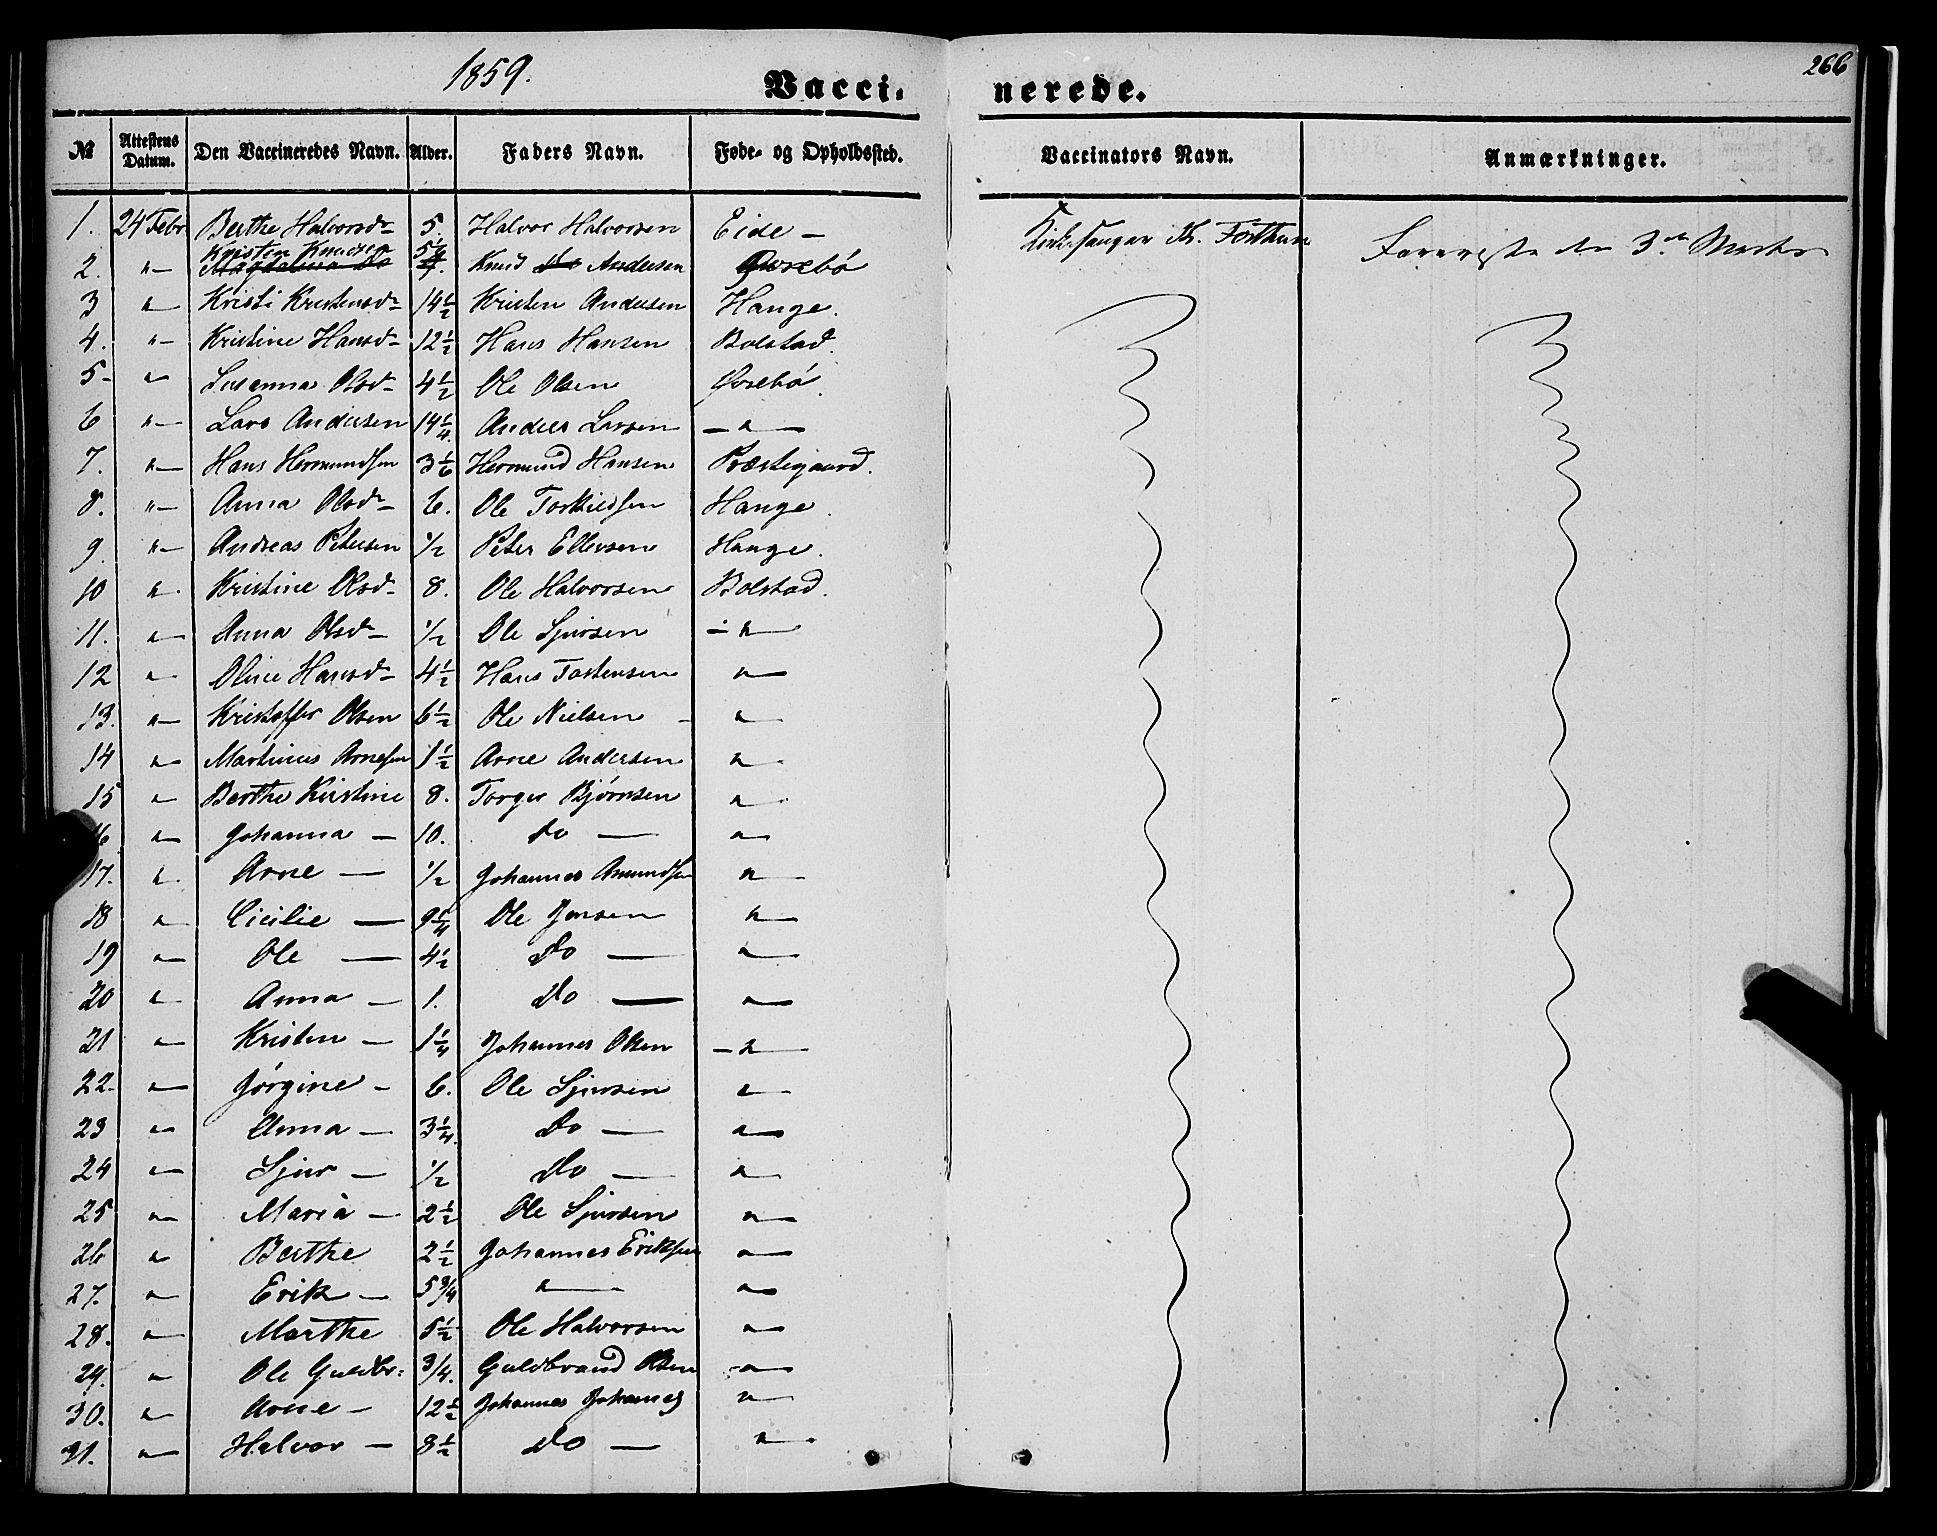 1859.
266
Vacci- nerede.
№ Attestens Datum. Den Vaccineredes Navn. Alder. Faders Navn. Føde- og Opholdssted. Vaccinators Navn. Anmærkninger.
1. 24 Febr Berthe Halvorsd- 5. Halvor Halvorsen Eide - Kirkesanger K. Forthun Foreviste den 3de Marts
Kristen Knudsen
2. "- Magdalena Do Knud Do Andersen Øvrebø
3 "- Kristi Kristensd- 14 1/2 Kristen Andersen Hauge.
4. "- Kristine Hansd- 12 1/2 Hans Hansen Bolstad.
5- "- Susanna Olsd- 4 1/2 Ole Olsen Øvrebø.
6 "- Lars Andersen 14 1/4. Anders Larsen -"-
7. "- Hans Hermundsen 3 1/6 Hermund Hansen Præstegaard.
8. "- Anna Olsd- 6. Ole Torkildsen Hauge.
9. "- Andreas Petersen 1/2 Peter Ellevsen Hauge.
10 "- Kristine Olsd- 8. Ole Halvorsen Bolstad.
11. "- Anna Olsd- 1/2 Ole Sjursen -"-
12 "- Oline Hansd- 4 1/2 Hans Tostensen "-
13. "- Kristoffer Olsen 6 1/2 Ole Nielsen - "-
14 "- Martinus Arnesen 1 1/2 Arne Andersen "-
15 "- Berthe Kirstine 8. Torger Bjørnsen "-
16 "- Johanna - 10. Do - "-
17. "- Arne - 1/2 Johannes Amundsen "-
18 "- Cicilie - 9 1/4 Ole Jensen "-
19 "- Ole - 4 1/2 Do - "-
20 "- Anna - 1. Do - "-
21 "- Kristen - 1 1/4 Johannes Olsen -"-
22. "- Jørgine - 6. Ole Sjursen "-
23 "- Anna - 3 1/4. Do - "-
24 "- Sjur - 1/2 Do - "-
25 "- Maria - 2 1/2 Ole Sjursen "-
26 "- Berthe 2 1/2 Johannes Eriksen "-
27. "- Erik - 5 3/4 "- "-
28. "- Marthe 5 1/2 Ole Halvorsen "-
29. "- Ole Guldbr: 3/4. Guldbrand Olsen -"-
30. "- Arne - 12 1/2 Johannes Johannes "-
31. "- Halvor - 8 1/2 Do - "-